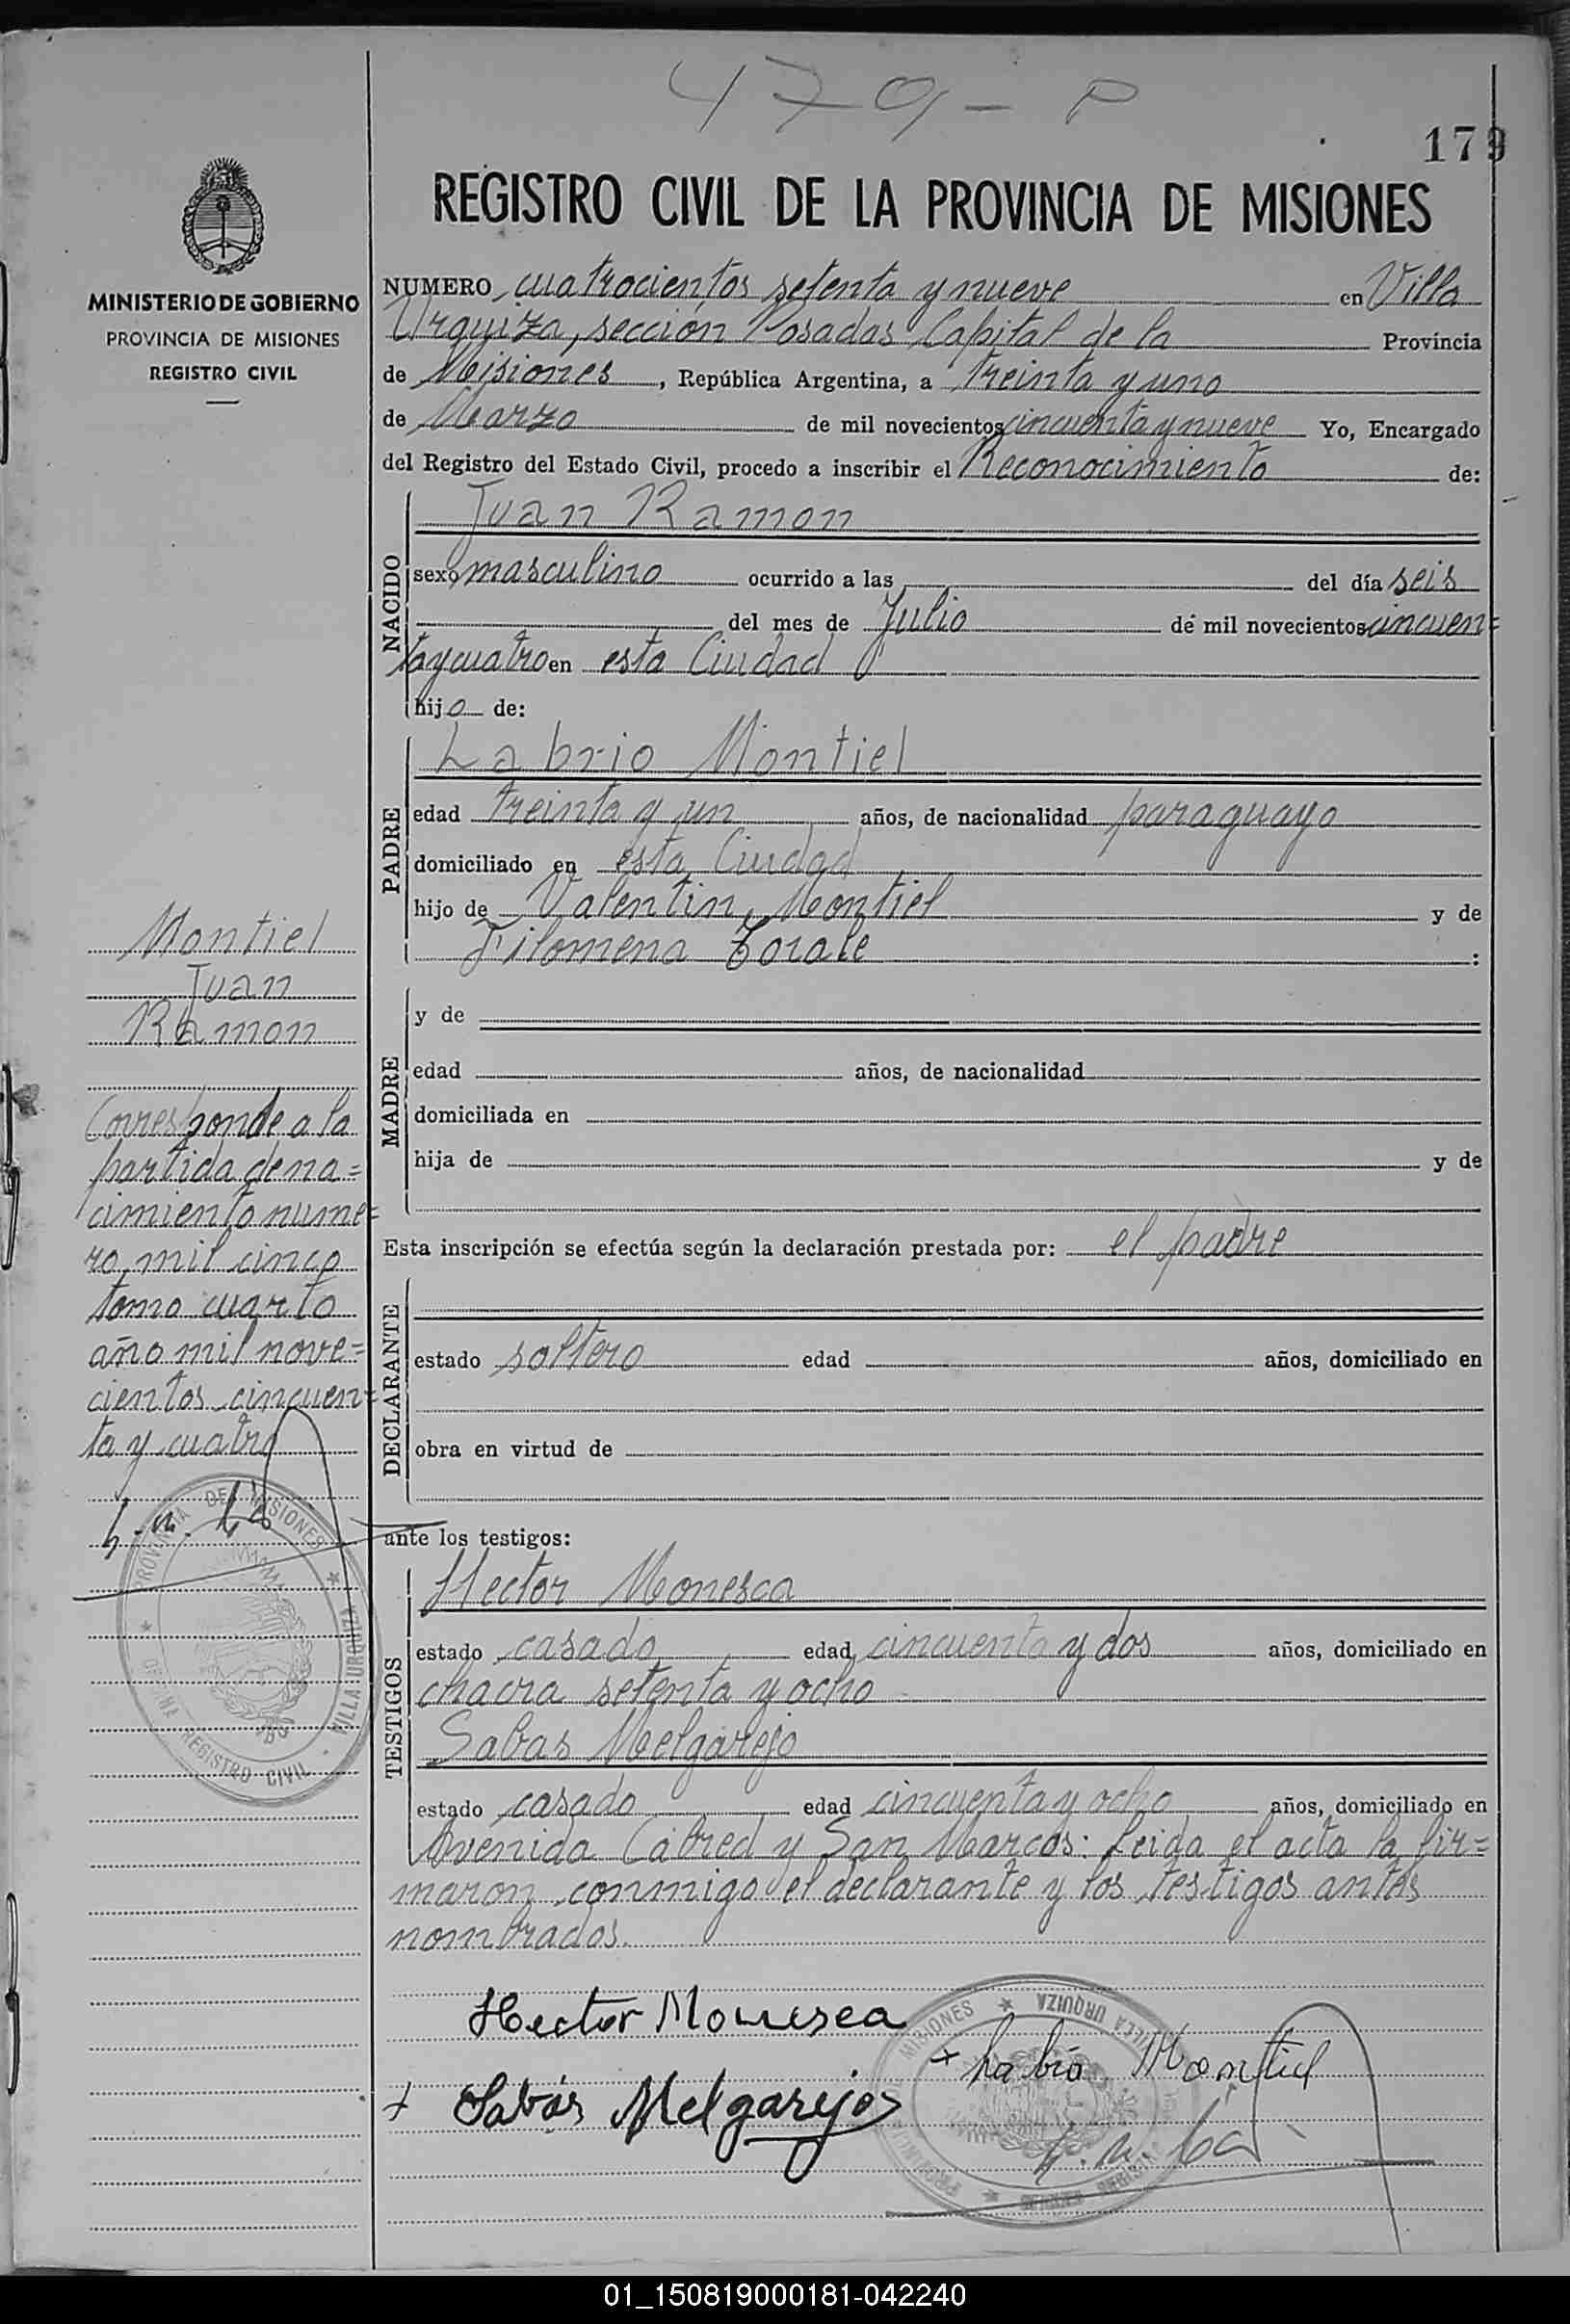 479 - P
179
REGISTRO CIVIL DE LA PROVINCIA DE MISIONES
MINISTERIO DE GOBIERNO
PROVINCIA DE MISIONES
REGISTRO CIVIL
NUMERO cuatrocientos setenta y nueve en Villa
Urquiza, sección Posadas Capital de la Provincia
de Misiones, República Argentina, a treinta y uno
de Marzo de mil novecientos cincuenta y nueve Yo, Encargado
del Registro del Estado Civil, procedo a inscribir el Reconocimiento de:
NACIDO
Juan Ramon
sexo masculino ocurrido a las del día seis
del mes de Julio de mil novecientos cincuen=
ta y cuatro en esta Ciudad
hijo de:
PADRE
Labrio Montiel
edad treinta y un años, de nacionalidad paraguayo
domiciliado en esta Ciudad
hijo de Valentin Montiel y de
Filomena Torale :
MADRE
y de
edad años, de nacionalidad
domiciliada en
hija de y de
Esta inscripción se efectúa según la declaración prestada por: el padre
DECLARANTE
estado soltero edad años, domiciliado en
obra en virtud de
ante los testigos:
TESTIGOS
Hector Monesca
estado casado edad cincuenta y dos años, domiciliado en
chacra setenta y ocho
Sabas Melgarejo
estado casado edad cincuenta y ocho años, domiciliado en
Avenida Cabred y San Marcos: Leida el acta la fir=
maron conmigo el declarante y los testigos antes
nombrados.
Montiel
Juan
Ramon
Corresponde a la
partida de na=
cimiento nume=
ro mil cinco
tomo cuarto
año mil nove=
cientos cincuen=
ta y cuatro
PROVINCIA DE MISIONES
OFICINA REGISTRO CIVIL - VILLA URQUIZA
Hector Monesca
+ Labrio Montiel
+ Sabás Melgarejo
MISIONES VILLA URQUIZA
01_150819000181-042240